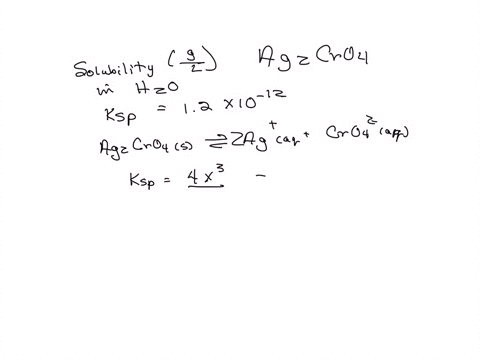 Solubility (g/L) Ag2CrO4
in H2O
Ksp = 1.2 × 10^-12
Ag2CrO4(s) ⇌ 2Ag^+(aq) + CrO4^2-(aq)
Ksp = 4x^3 -